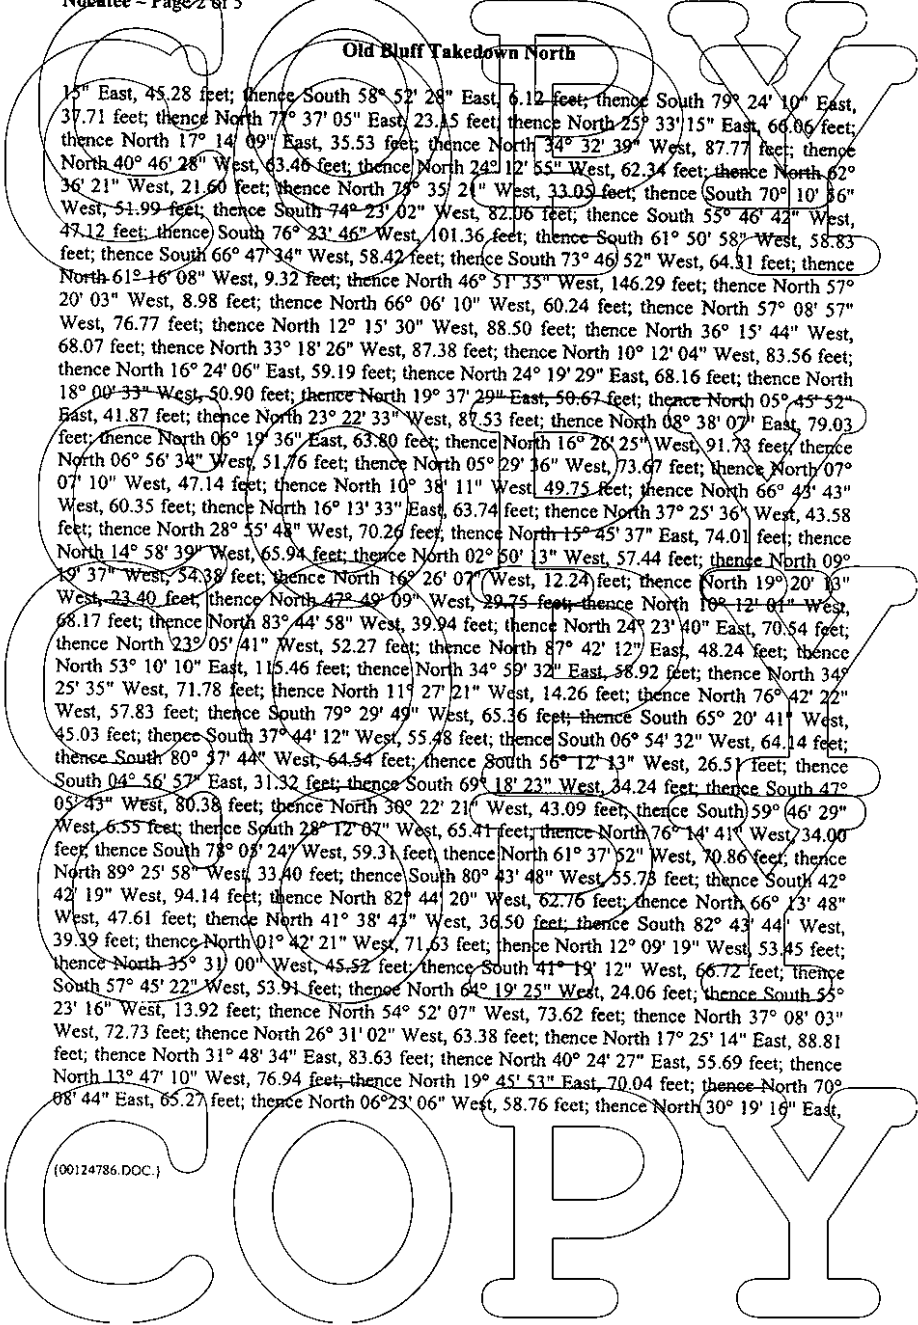 Nocatee – Page 2 of 5
Old Bluff Takedown North
15" East, 45.28 feet; thence South 58° 52' 28" East, 6.12 feet; thence South 79° 24' 10" East,
37.71 feet; thence North 77° 37' 05" East, 23.15 feet; thence North 25° 33'15" East, 66.06 feet;
thence North 17° 14' 09" East, 35.53 feet; thence North 34° 32' 39" West, 87.77 feet; thence
North 40° 46' 28" West, 63.46 feet; thence North 24° 12' 55" West, 62.34 feet; thence North 62°
36' 21" West, 21.60 feet; thence North 78° 35' 21" West, 33.05 feet; thence South 70° 10' 56"
West, 51.99 feet; thence South 74° 23' 02" West, 82.06 feet; thence South 55° 46' 42" West,
47.12 feet; thence South 76° 23' 46" West, 101.36 feet; thence South 61° 50' 58" West, 58.83
feet; thence South 66° 47' 34" West, 58.42 feet; thence South 73° 46' 52" West, 64.31 feet; thence
North 61° 16' 08" West, 9.32 feet; thence North 46° 51' 35" West, 146.29 feet; thence North 57°
20' 03" West, 8.98 feet; thence North 66° 06' 10" West, 60.24 feet; thence North 57° 08' 57"
West, 76.77 feet; thence North 12° 15' 30" West, 88.50 feet; thence North 36° 15' 44" West,
68.07 feet; thence North 33° 18' 26" West, 87.38 feet; thence North 10° 12' 04" West, 83.56 feet;
thence North 16° 24' 06" East, 59.19 feet; thence North 24° 19' 29" East, 68.16 feet; thence North
18° 00' 33" West, 50.90 feet; thence North 19° 37' 29" East, 50.67 feet; thence North 05° 45' 52"
East, 41.87 feet; thence North 23° 22' 33" West, 87.53 feet; thence North 08° 38' 07" East, 79.03
feet; thence North 06° 19' 36" East, 63.80 feet; thence North 16° 26' 25" West, 91.73 feet; thence
North 06° 56' 34" West, 51.76 feet; thence North 05° 29' 36" West, 73.67 feet; thence North 07°
07' 10" West, 47.14 feet; thence North 10° 38' 11" West, 49.75 feet; thence North 66° 43' 43"
West, 60.35 feet; thence North 16° 13' 33" East, 63.74 feet; thence North 37° 25' 36" West, 43.58
feet; thence North 28° 55' 48" West, 70.26 feet; thence North 15° 45' 37" East, 74.01 feet; thence
North 14° 58' 39" West, 65.94 feet; thence North 02° 50' 13" West, 57.44 feet; thence North 09°
19' 37" West, 54.38 feet; thence North 16° 26' 07" West, 12.24 feet; thence North 19° 20' 13"
West, 23.40 feet; thence North 47° 49' 09" West, 29.75 feet; thence North 10° 12' 01" West,
68.17 feet; thence North 83° 44' 58" West, 39.94 feet; thence North 24° 23' 40" East, 70.54 feet;
thence North 23° 05' 41" West, 52.27 feet; thence North 87° 42' 12" East, 48.24 feet; thence
North 53° 10' 10" East, 115.46 feet; thence North 34° 59' 32" East, 58.92 feet; thence North 34°
25' 35" West, 71.78 feet; thence North 11° 27' 21" West, 14.26 feet; thence North 76° 42' 22"
West, 57.83 feet; thence South 79° 29' 49" West, 65.36 feet; thence South 65° 20' 41" West,
45.03 feet; thence South 37° 44' 12" West, 55.48 feet; thence South 06° 54' 32" West, 64.14 feet;
thence South 80° 37' 44" West, 64.54 feet; thence South 56° 12' 13" West, 26.51 feet; thence
South 04° 56' 57" East, 31.32 feet; thence South 69° 18' 23" West, 34.24 feet; thence South 47°
05' 43" West, 80.38 feet; thence North 30° 22' 21" West, 43.09 feet; thence South 59° 46' 29"
West, 6.55 feet; thence South 28° 12' 07" West, 65.41 feet; thence North 76° 14' 41" West, 34.00
feet; thence South 78° 05' 24" West, 59.31 feet; thence North 61° 37' 52" West, 70.86 feet; thence
North 89° 25' 58" West, 33.40 feet; thence South 80° 43' 48" West, 55.78 feet; thence South 42°
42' 19" West, 94.14 feet; thence North 82° 44' 20" West, 62.76 feet; thence North 66° 13' 48"
West, 47.61 feet; thence North 41° 38' 43" West, 36.50 feet; thence South 82° 43' 44" West,
39.39 feet; thence North 01° 42' 21" West, 71.63 feet; thence North 12° 09' 19" West, 53.45 feet;
thence North 35° 31' 00" West, 45.52 feet; thence South 41° 19' 12" West, 66.72 feet; thence
South 57° 45' 22" West, 53.91 feet; thence North 64° 19' 25" West, 24.06 feet; thence South 55°
23' 16" West, 13.92 feet; thence North 54° 52' 07" West, 73.62 feet; thence North 37° 08' 03"
West, 72.73 feet; thence North 26° 31' 02" West, 63.38 feet; thence North 17° 25' 14" East, 88.81
feet; thence North 31° 48' 34" East, 83.63 feet; thence North 40° 24' 27" East, 55.69 feet; thence
North 13° 47' 10" West, 76.94 feet; thence North 19° 45' 53" East, 70.04 feet; thence North 70°
08' 44" East, 65.27 feet; thence North 06°23' 06" West, 58.76 feet; thence North 30° 19' 16" East,
{00124786.DOC.}
COPY
COPY
COPY
COPY
COPY